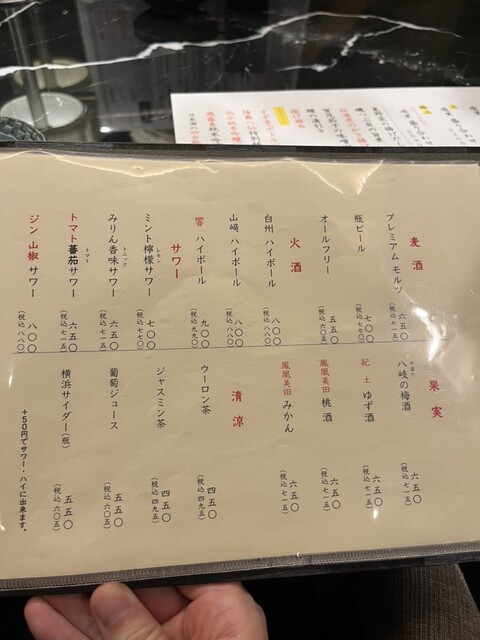 麦酒
プレミアム モルツ 六五〇
(税込 七一五)
瓶ビール 七〇〇
(税込 七七〇)
オールフリー 五五〇
(税込 六〇五)
火酒
白州 ハイボール 八〇〇
(税込 八八〇)
山﨑 ハイボール 八〇〇
(税込 八八〇)
響 ハイボール 九〇〇
(税込 九九〇)
サワー
ミント檸檬サワー 七〇〇
レモン
(税込 七七〇)
みりん香味サワー 六五〇
トニック
(税込 七一五)
トマト蕃茄サワー 六五〇
トマト
(税込 七一五)
ジン 山椒 サワー 八〇〇
(税込 八八〇)
果実
八岐の梅酒 六五〇
やまた
(税込 七一五)
紀土 ゆず酒 六五〇
(税込 七一五)
鳳凰美田 桃酒 六五〇
(税込 七一五)
鳳凰美田 みかん 六五〇
(税込 七一五)
清涼
ウーロン茶 四五〇
(税込 四九五)
ジャスミン茶 四五〇
(税込 四九五)
葡萄ジュース 五五〇
(税込 六〇五)
横浜サイダー(瓶) 五五〇
(税込 六〇五)
+50円でサワー・ハイに出来ます。